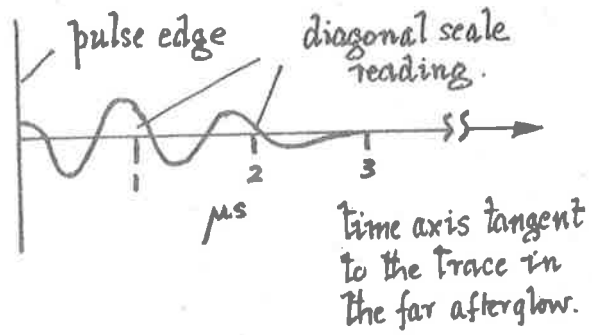 pulse edge
diagonal scale
reading.
1
2
3
μs
time axis tangent
to the trace in
the far afterglow.